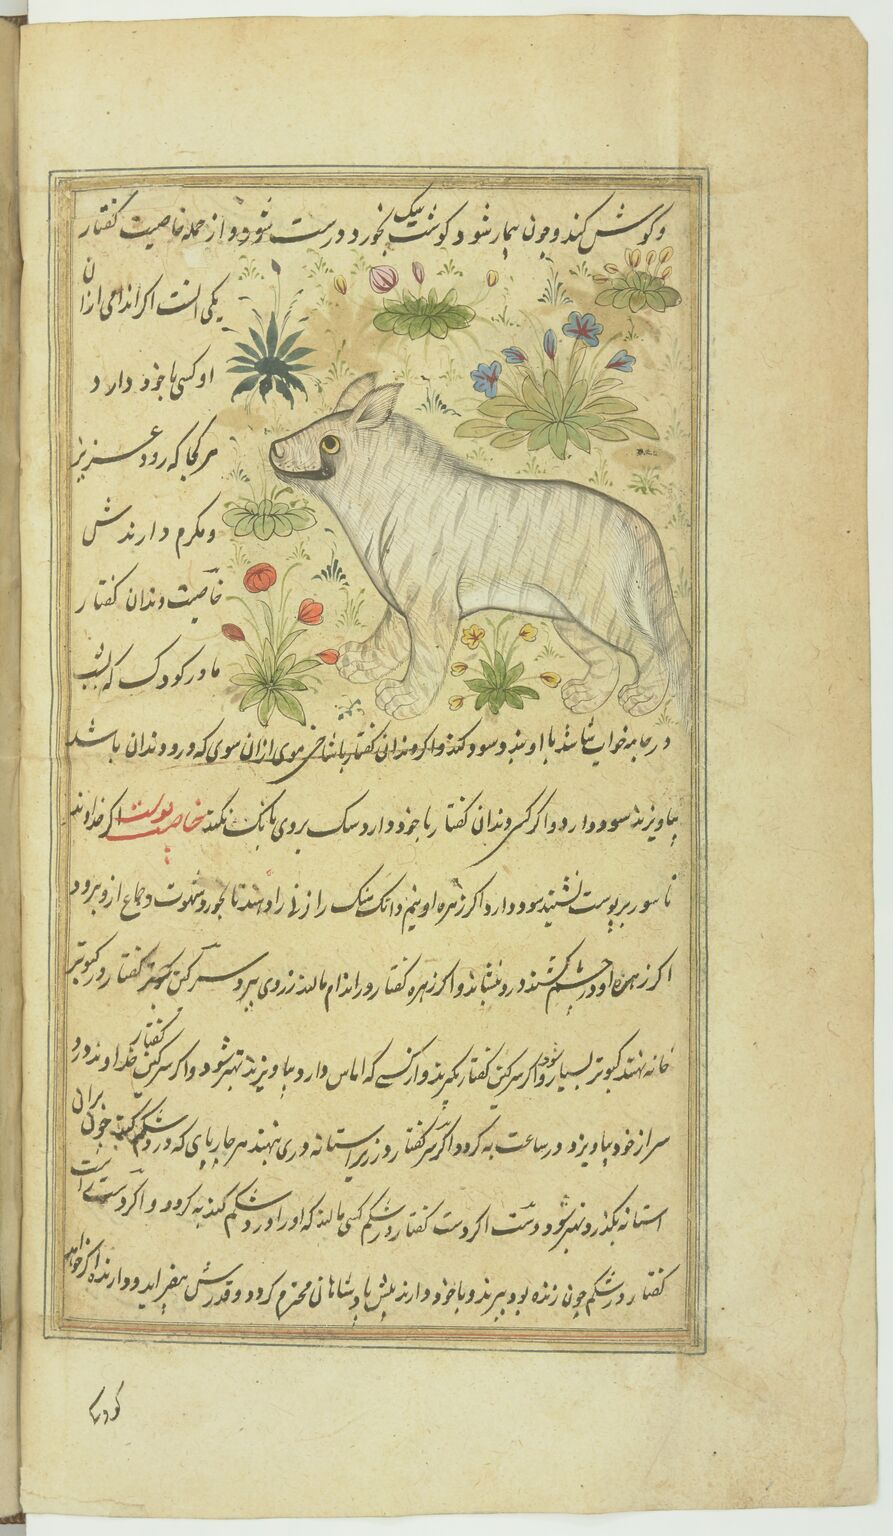 و گوش کند و چون بیمار شود گوشت سگ بخورد درست شود و از جمله خاصیت کفتار
یکی آنست اگر اندامی از ان
او کسی با خود دارد
هر کجا که رود عزیز
و مکرم دارندش
خاصیت دندان کفتار
مادر کودک که بشب
در جامه خواب شاشد با او بندد سود کند و اگر دندان کفتار با شاخی موی از ان سوی که درد دندان باشد
بیاویزند سود دارد و اگر کسی دندان کفتار با خود دارد سک بر وی بانک نکند خاصیت پوست اگر خداوند
ناسور بر پوست نشیند سود دارد اگر زهره او نیم دانک سنک را زنی را دهند تا بخورد شهوت و جماع از و برود
اگر زهره او در چشم کشند درد بنشاند و اگر زهره کفتار در اندام مالند زردی ببرد سرکین کفتار در کبوتر
خانه نهند کبوتر بسیار شود و اگر سرکین کفتار بگیرند و از کسی که اماس دارد بیاویزند بهتر شود و اگر سرکین کفتار خداوند درد
سر از خود بیاویزد در ساعت به گردد اگر سر کفتار در زیر استانه دری نهند هر چارپای که درد شکم کند چون بران
استانه بگذرد بهتر شود دست اگر دست کفتار در شکم کسی مالند که او را درد شکم کند به گردد و اگر دست راست
کفتار در شکم چون زنده بود ببرند و با خود دارند پیش پادشاهان محترم گردد و قدرش بیفزاید و دارنده اگر خواهد